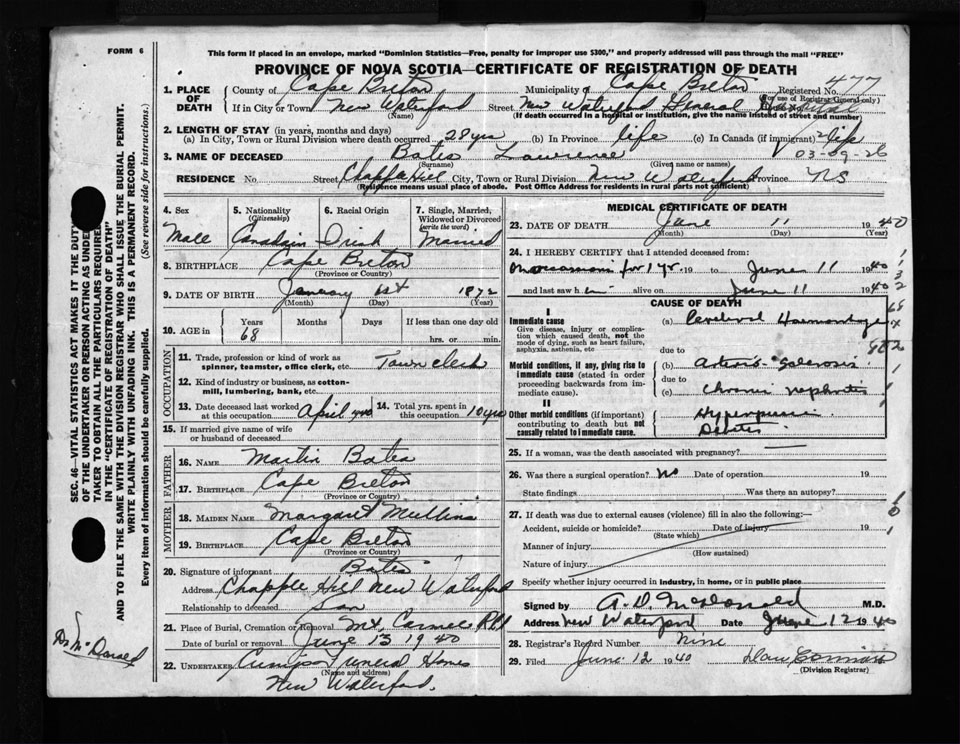 FORM 6
This form if placed in an envelope, marked "Dominion Statistics—Free, penalty for improper use $300," and properly addressed will pass through the mail "FREE"
PROVINCE OF NOVA SCOTIA—CERTIFICATE OF REGISTRATION OF DEATH
1. PLACE OF DEATH
County of Cape Breton Municipality of Cape Breton Registered No. 477
(For use of Registrar General only)
If in City or Town New Waterford Street New Waterford General Hospital
(Name) (If death occurred in a hospital or institution, give name instead of street and number)
2. LENGTH OF STAY (in years, months and days)
(a) In City, Town or Rural Division where death occurred 28 yrs (b) In Province life (c) In Canada (if immigrant) life
03-09-26
3. NAME OF DECEASED Bates Lawrence
(Surname) (Given name or names)
RESIDENCE No. Street Chapple Hill City, Town or Rural Division New Waterford Province NS
(Residence means usual place of abode. Post Office Address for residents in rural parts not sufficient)
4. Sex
Male
5. Nationality
(Citizenship)
Canadain
6. Racial Origin
Irish
7. Single, Married, Widowed or Divorced
(write the word)
Married
8. BIRTHPLACE Cape Breton
(Province or Country)
9. DATE OF BIRTH January 1st 1872
(Month) (Day) (Year)
10. AGE in
Years Months Days If less than one day old
68 hrs. or min.
OCCUPATION
11. Trade, profession or kind of work as
spinner, teamster, office clerk, etc. Town clerk
12. Kind of industry or business, as cotton-
mill, lumbering, bank, etc.
13. Date deceased last worked at this occupation April 1940
14. Total yrs. spent in this occupation 10 yrs
15. If married give name of wife
or husband of deceased
FATHER
16. NAME Martin Bates
17. BIRTHPLACE Cape Breton
(Province or Country)
MOTHER
18. MAIDEN NAME Margaret Mullins
19. BIRTHPLACE Cape Breton
(Province or Country)
20. Signature of informant Bates
Address Chapple Hill New Waterford
Relationship to deceased Son
21. Place of Burial, Cremation or Removal Mt. Carmel
Date of burial or removal June 13 1940
22. UNDERTAKER Funeral Home
(Name and address)
New Waterford.
MEDICAL CERTIFICATE OF DEATH
23. DATE OF DEATH June 11 1940
(Month) (Day) (Year)
24. I HEREBY CERTIFY that I attended deceased from:
for 1 yr. 19 to June 11 1940
and last saw him alive on June 11 1940
CAUSE OF DEATH
I
Immediate cause
Give disease, injury or complication which caused death, not the mode of dying, such as heart failure, asphyxia, asthenia, etc
(a) Cerebral Haemorrhage
due to
Morbid conditions, if any, giving rise to immediate cause (stated in order proceeding backwards from immediate cause).
(b)
due to
(c) Chronic nephritis
II
Other morbid conditions (if important) contributing to death but not causally related to immediate cause.
25. If a woman, was the death associated with pregnancy?
26. Was there a surgical operation? No Date of operation 19
State findings Was there an autopsy?
27. If death was due to external causes (violence) fill in also the following:—
Accident, suicide or homicide? Date of injury 19
(State which)
Manner of injury
(How sustained)
Nature of injury
Specify whether injury occurred in industry, in home, or in public place
Signed by A. D. McDonald M.D.
Address New Waterford Date June 12 1940
28. Registrar's Record Number Nine
29. Filed June 12 1940
(Division Registrar)
SEC. 46—VITAL STATISTICS ACT MAKES IT THE DUTY
OF THE UNDERTAKER OR PERSON ACTING AS UNDER
TAKER TO OBTAIN ALL THE PARTICULARS REQUIRED
IN THE "CERTIFICATE OF REGISTRATION OF DEATH"
AND TO FILE THE SAME WITH THE DIVISION REGISTRAR WHO SHALL ISSUE THE BURIAL PERMIT.
WRITE PLAINLY WITH UNFADING INK. THIS IS A PERMANENT RECORD.
Every item of information should be carefully supplied. (See reverse side for instructions.)
Dr McDonald